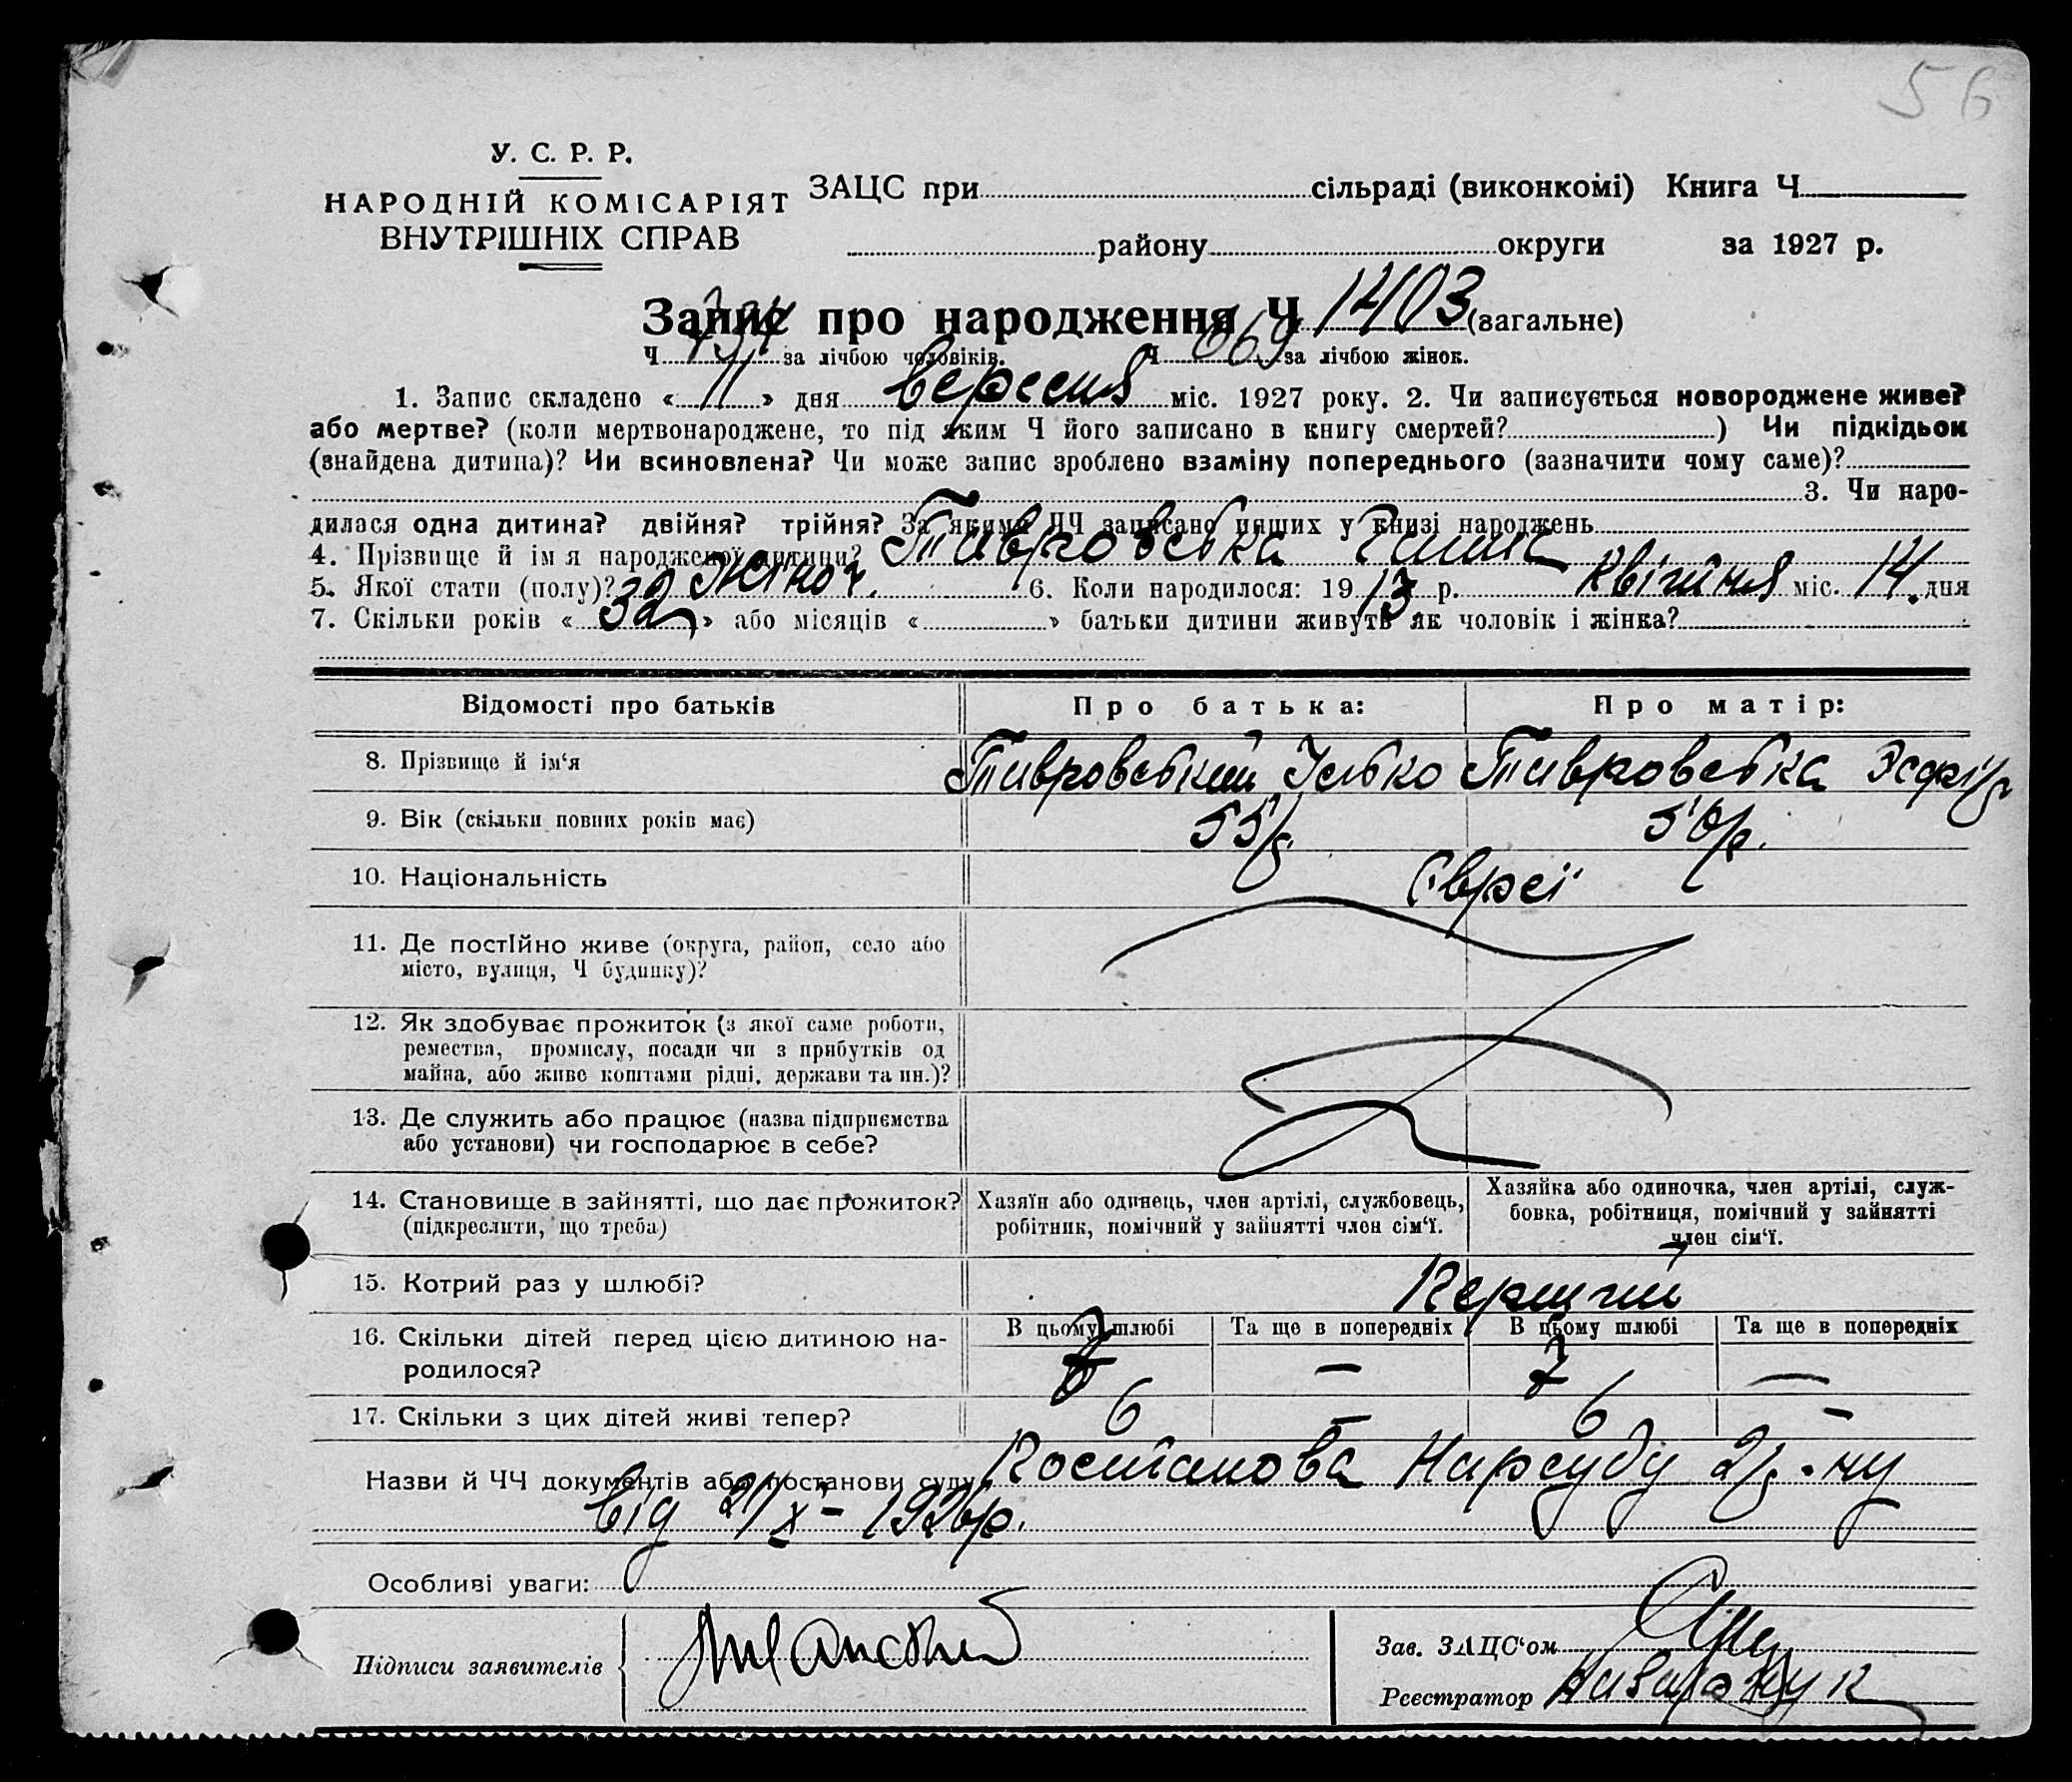 56
У. С. Р. Р.
НАРОДНІЙ КОМІСАРІЯТ
ВНУТРІШНІХ СПРАВ
ЗАЦС при сільраді (виконкомі) Книга Ч
району округи за 1927 р.
Запис про народження Ч 1403 (загальне)
Ч 734 за лічбою чоловіків. Ч 669 за лічбою жінок.
1. Запис складено « 11 » дня вересня міс. 1927 року. 2. Чи записується новороджене живе?
або мертве? (коли мертвонароджене, то під яким Ч його записано в книгу смертей? ) Чи підкідьок
(знайдена дитина)? Чи всиновлена? Чи може запис зроблено взаміну попереднього (зазначити чому саме)?
3. Чи наро-
дилася одна дитина? двійня? трійня? За якими ЧЧ записано инших у книзі народжень
4. Прізвище й ім я народженої дитини? Тивровська
5. Якої стати (полу)? Жіноч. 6. Коли народилося: 19 13 р. Квітня міс. 14. дня
7. Скільки років « 32 » або місяців « » батьки дитини живуть як чоловік і жінка?
Відомості про батьків
Про батька:
Про матір:
8. Прізвище й ім‘я
Тивровський Усько
Тивровська Эсфір
9. Вік (скільки повних років має)
55 р.
50 р.
10. Національність
Євреї
11. Де постІйно живе (округа, район, село або
місто, вулиця, Ч будинку)?
12. Як здобуває прожиток (з якої саме роботи,
ремества, промислу, посади чи з прибутків од
майна, або живе коштами рідні, держави та ин.)?
13. Де служить або працює (назва підприємства
або установи) чи господарює в себе?
14. Становище в зайнятті, що дає прожиток?
(підкреслити, що треба)
Хазяїн або одинець, член артілі, службовець,
робітник, помічний у зайнятті член сім‘ї.
Хазяйка або одиночка, член артілі, служ-
бовка, робітниця, помічний у зайнятті
член сім‘ї.
15. Котрий раз у шлюбі?
Перший
16. Скільки дітей перед цією дитиною на-
родилося?
В цьому шлюбі
Та ще в попередніх
В цьому шлюбі
Та ще в попередніх
7 — 7 —
17. Скільки з цих дітей живі тепер?
6 – 6 –
Назви й ЧЧ документів або постанови суду Постанова Нарсуду 2 р.-ну
від 21/X – 1926 р.
Особливі уваги:
Підписи заявителів
Зав. ЗАЦС‘ом
Реєстратор Назарчук